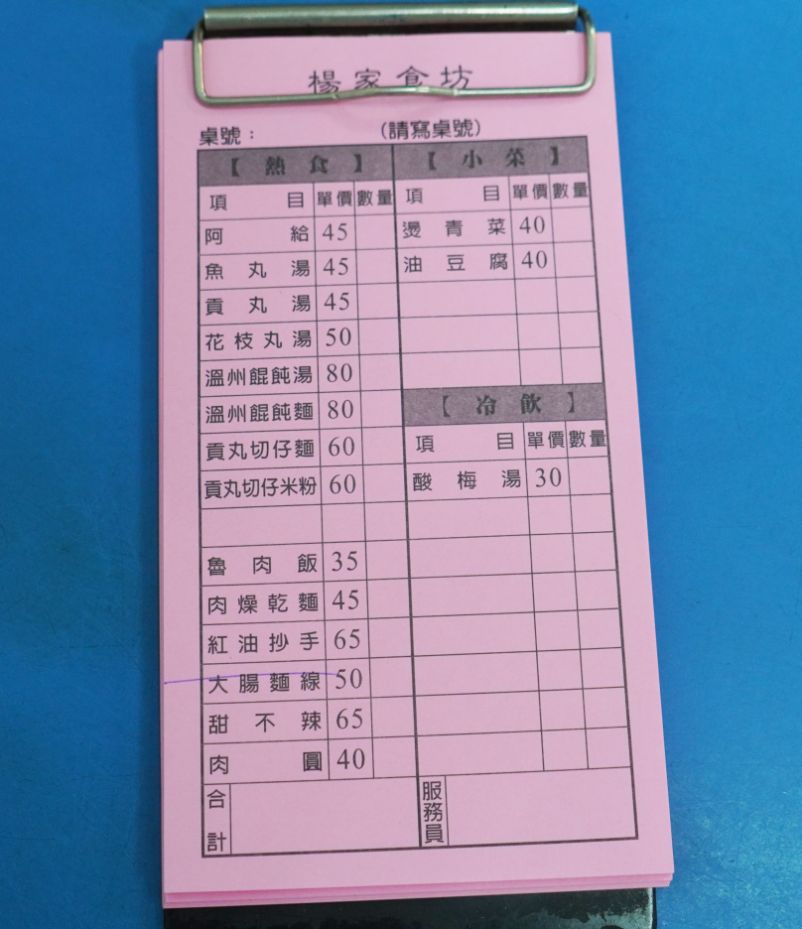 楊家食坊
桌號： (請寫桌號)
【熱食】
項目 單價 數量
阿給 45
魚丸湯 45
貢丸湯 45
花枝丸湯 50
溫州餛飩湯 80
溫州餛飩麵 80
貢丸切仔麵 60
貢丸切仔米粉 60
魯肉飯 35
肉燥乾麵 45
紅油抄手 65
大腸麵線 50
甜不辣 65
肉圓 40
合計
【小菜】
項目 單價 數量
燙青菜 40
油豆腐 40
【冷飲】
項目 單價 數量
酸梅湯 30
服務員